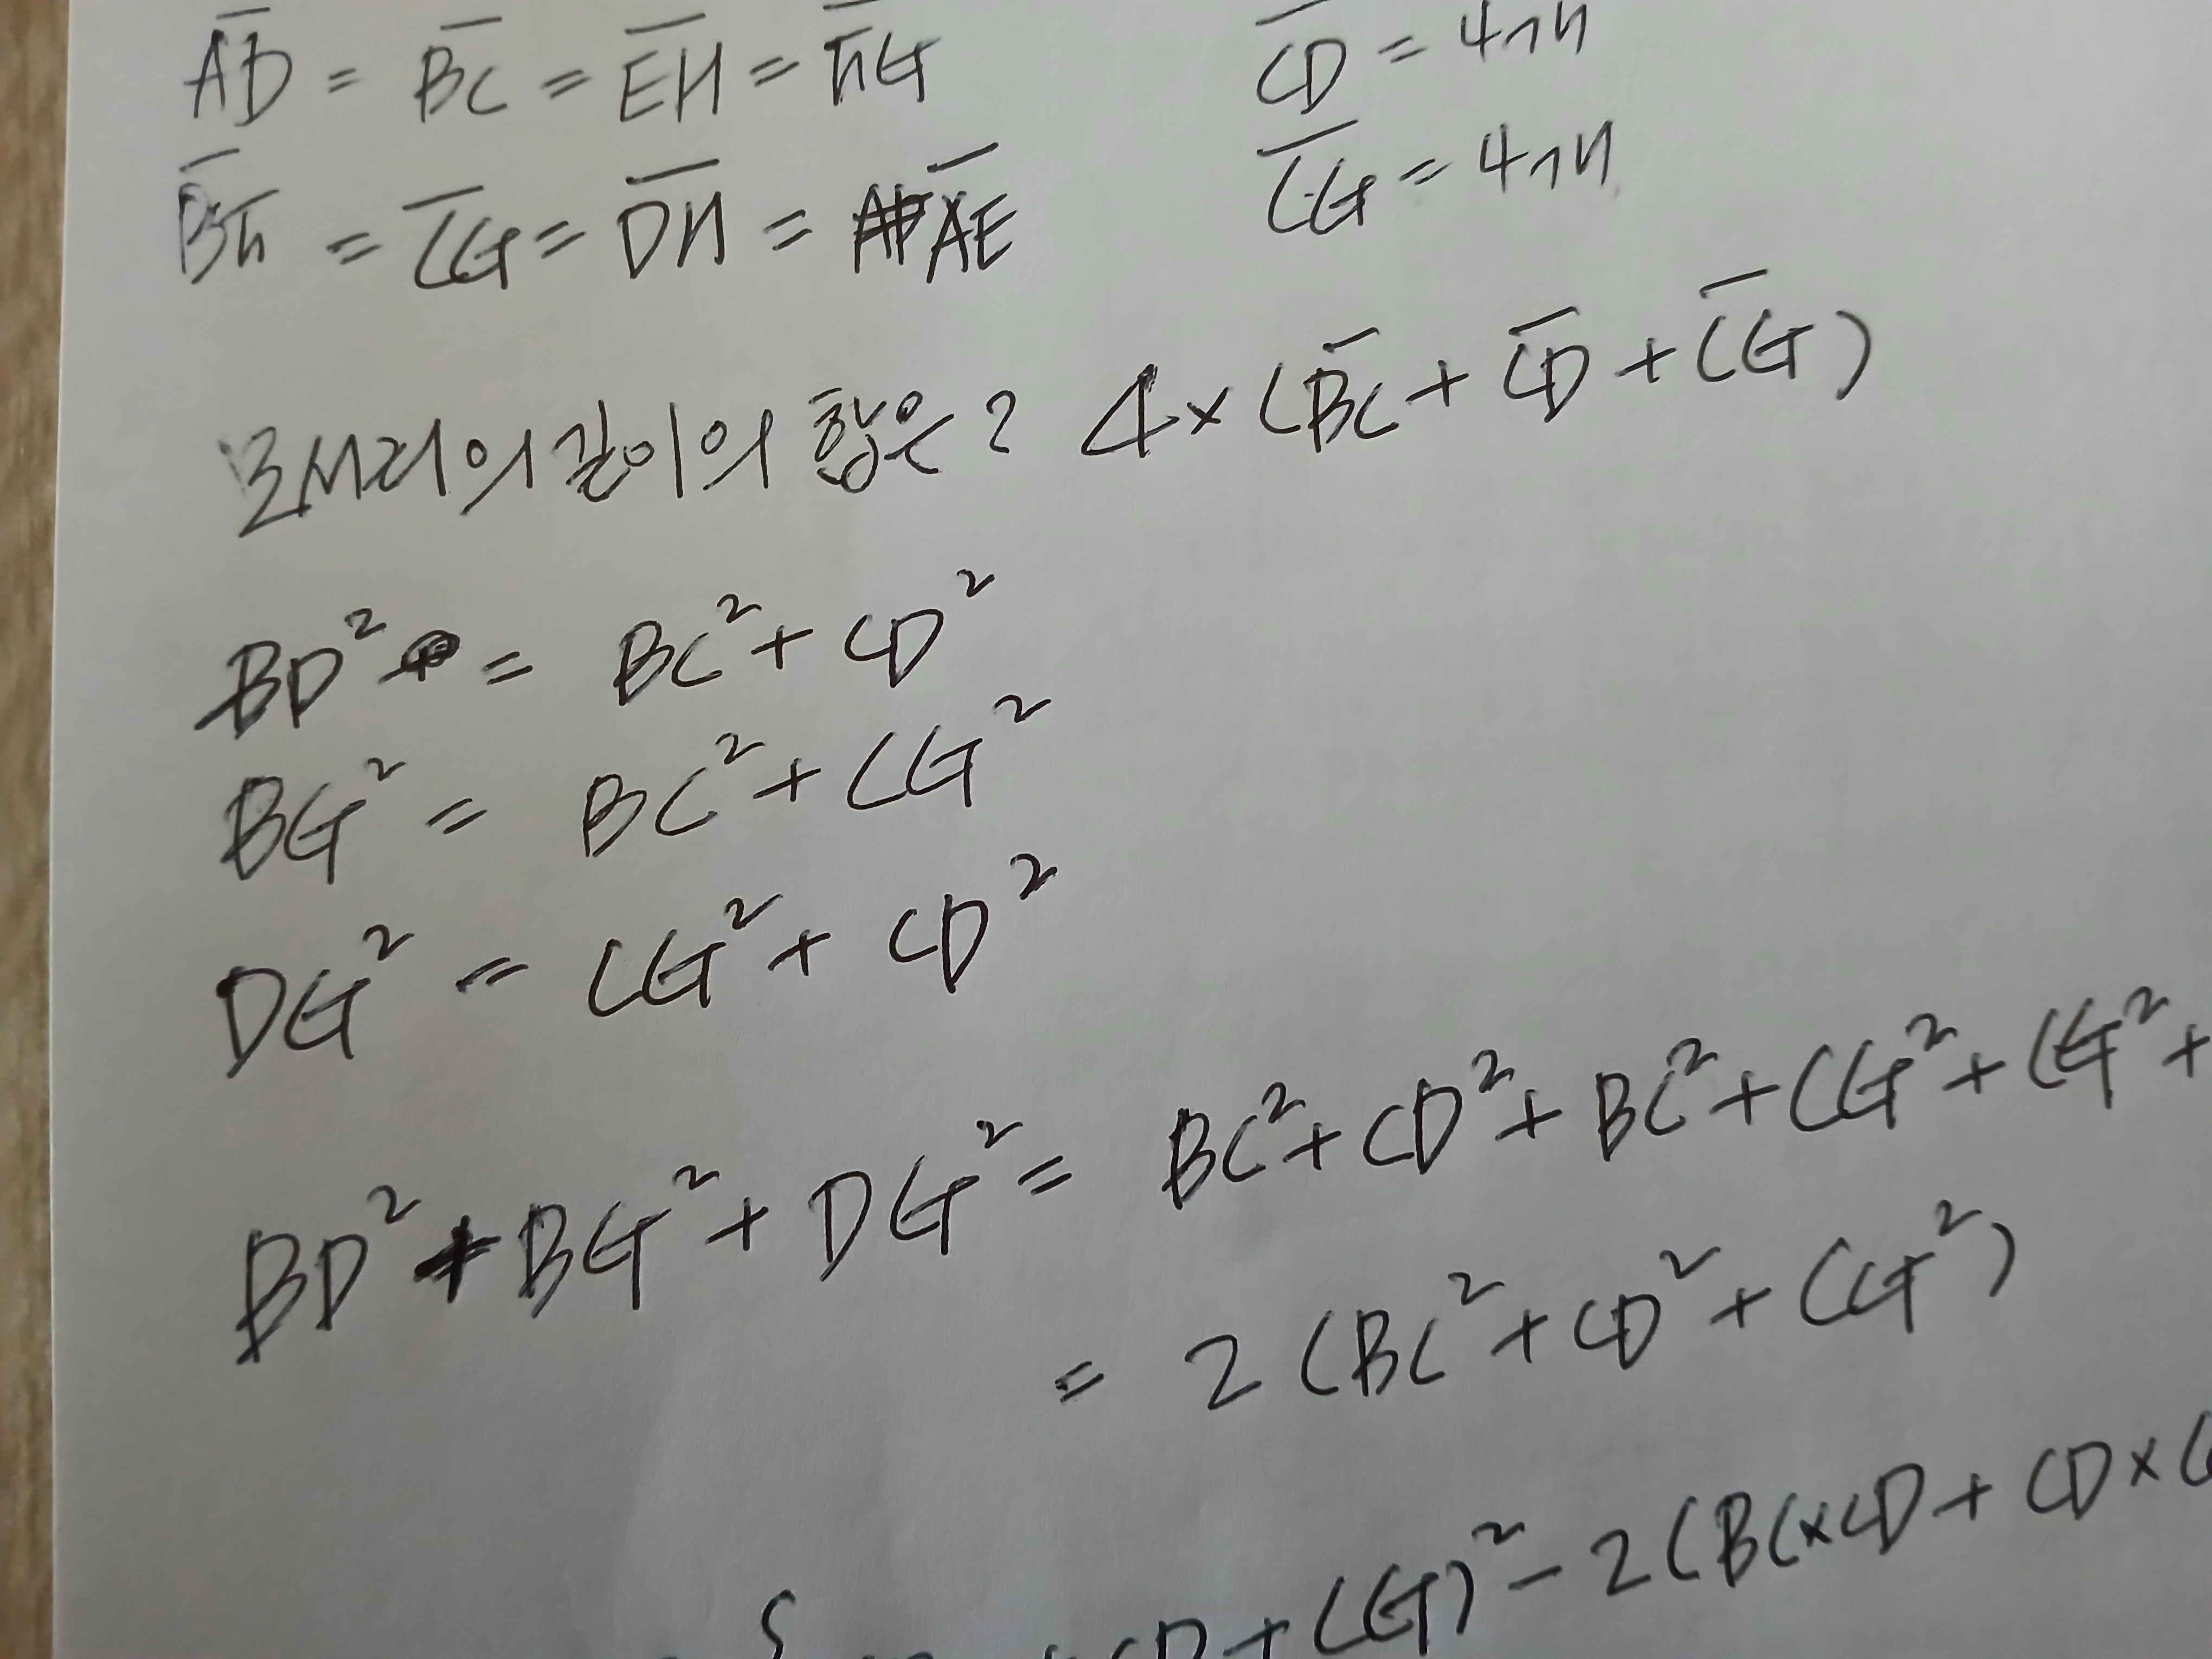 A̅D̅ = B̅C̅ = E̅H̅ = F̅G̅
C̅D̅ = 4개
B̅F̅ = C̅G̅ = D̅H̅ = A̅E̅
C̅G̅ = 4개
모서리의 길이의 합은? 4×(B̅C̅ + C̅D̅ + C̅G̅)
BD² = BC² + CD²
BG² = BC² + CG²
DG² = CG² + CD²
BD² + BG² + DG² = BC² + CD² + BC² + CG² + CG² +
= 2(BC² + CD² + CG²)
CD + CG)² - 2(BC×CD + CD×